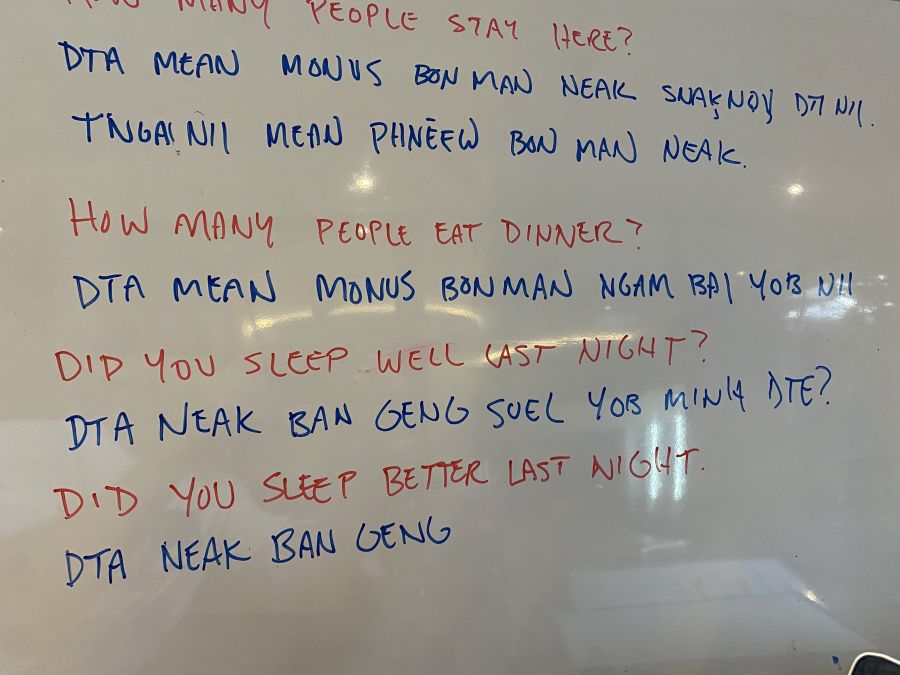 HOW MANY PEOPLE STAY HERE?
DTA MEAN MONUS BON MAN NEAK SNAKNOY DTI NII.
TNGAI NII MEAN PHNEEW BON MAN NEAK.
HOW MANY PEOPLE EAT DINNER?
DTA MEAN MONUS BONMAN NGAM BAI YOB NII
DID YOU SLEEP WELL LAST NIGHT?
DTA NEAK BAN GENG SUEL YOB MINIA DTE?
DID YOU SLEEP BETTER LAST NIGHT.
DTA NEAK BAN GENG